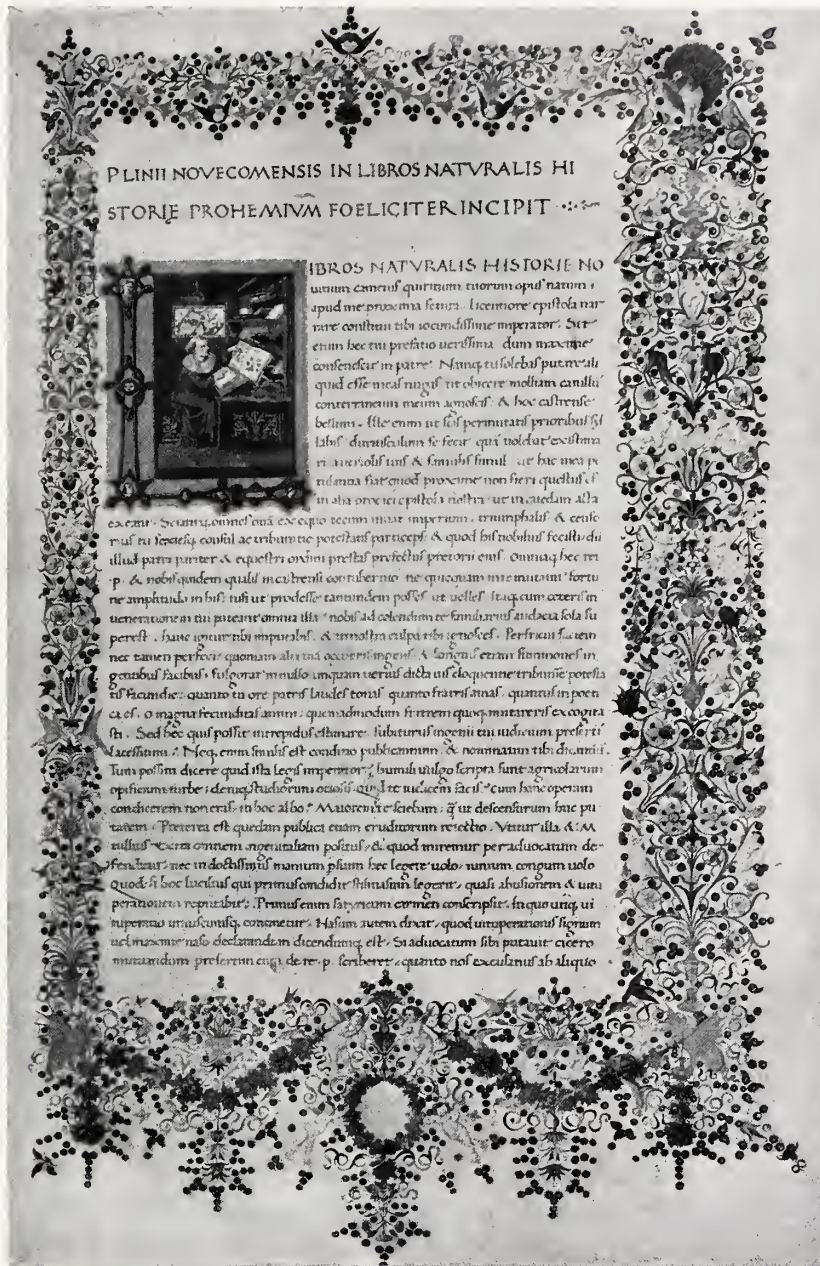 PLINII NOVECOMENSIS IN LIBROS NATVRALIS HI
STORIE PROHEMIVM FOELICITER INCIPIT
IBROS NATVRALIS HISTORIE NO
uitium camenis quiritium tuorum opus natum
apud me proxima fetura licentiore epistola nar
rare constitui tibi iocundissime imperator. Sit
enim hec tui prefatio uerissima dum maxime
consenescit in patre. Namq tu solebas putare ali
quid esse meas nugas ut obicere molliam catullu
conterraneum meum agnoscis & hoc castrense
uerbum. Ille enim ut scis permutatis prioribus syl
labis duriusculum se fecit qua uolebat existima
ri a uernolis tuis & famulis simul ut hac mea pe
tulantia fiat quod proxime non fieri questus es
in alia procaci epistola nostra ut in quedam acta
exeant. Sciantq omnes quam ex equo tecum uiuat imperium. triumphalis & censo
rius tu sexiesq consul ac tribunitie potestatis particeps & quod his nobilius fecisti dū
illud patri pariter & equestri ordini prestas prefectus pretorii eius. Omniaq hec rei
.p. & nobis quidem qualis in castrensi contubernio nec quicquam in te mutauit fortu
ne amplitudo in his nisi ut prodesse tantundem posses ut uelles Itaq cum ceteris in
uenerationem tui pateant omnia illa nobis ad colendum te familiarius audacia sola su
perest. hanc igitur tibi imputabis. & in nostra culpa tibi ignosces. Perfricui faciem
nec tamen perfeci quoniam alia uia occurris ingens & longius etiam summoues in
gentibus facibus. fulgorat in nullo unquam uerius dicta uis eloquentie tribunitie potesta
tis facundie. quanto tu ore patris laudes tonas quanto fratris amas. quantus in poeti
ca es. o magna fecunditas animi. quemadmodum fratrem quoq imitareris excogita
sti. Sed hec quis possit intrepidus estimare. subiturus ingenii tui iudicium preserti
lacessitum. Neq enim similis est conditio publicantium & nominatim tibi dicantiū.
Tum possim dicere quid ista legis imperator humili uulgo scripta sunt agricolarum
opificum turbe denique studiorum ociosis quid te iudicem facis cum hanc operam
condicerem non eras in hoc albo Maiorem te sciebam q ut descensurum huc pu
tarem. Preterea est quedam publica etiam eruditorum reiectio. Vtitur illa & M
tullius extra omnem ingenii aliam positus & quod miremur per aduocatum de
fenditur nec in doctissimis manium psium hec legere uolo iunium congum uolo
Quod si hoc lucilius qui primus condidit stili nasum legerit quasi abusionem & uitu
perationem reputabit. Primus enim satyricum carmen conscripsit. in quo utiq ui
tuperatio uniuscuiusq continetur. Nasum autem dixit quod uituperationis signum
uel maxime naso declarandum dicendumq est. Si aduocatum sibi putauit cicero
mutuandum presertim cum de re .p. scriberet quanto nos excusatius ab aliquo